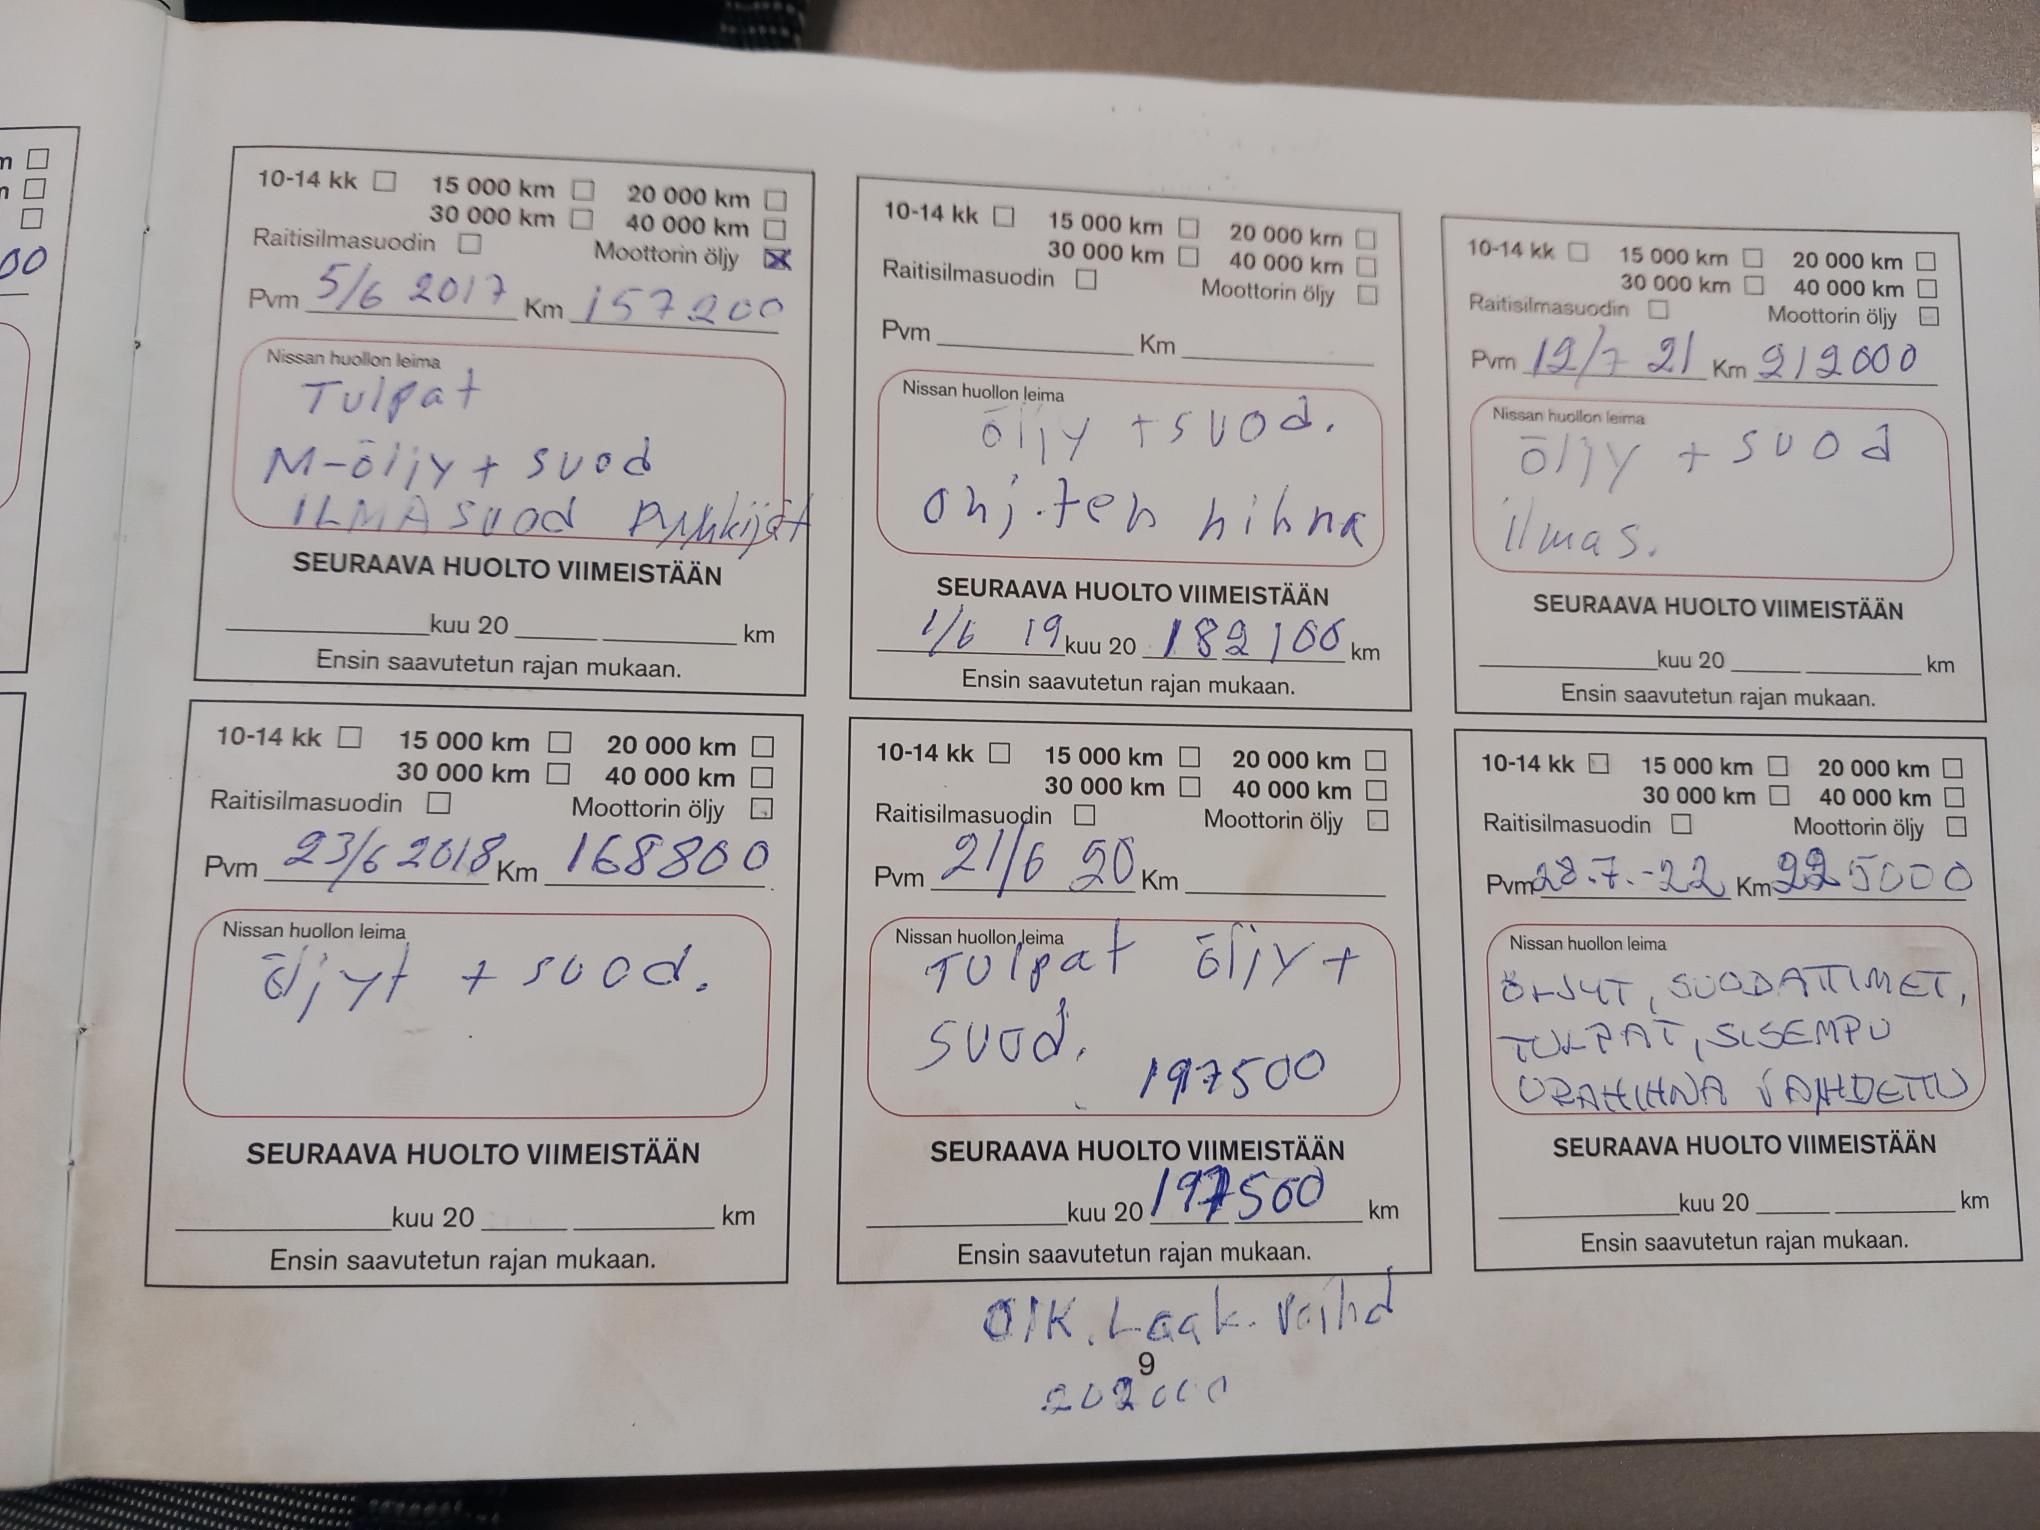 m
m
00
10-14 kk 15 000 km 20 000 km
30 000 km 40 000 km
Raitisilmasuodin Moottorin öljy
Pvm 5/6 2017 Km 157200
Nissan huollon leima
Tulpat
M-öljy + suod
ILMASUOD Pyyhkijät
SEURAAVA HUOLTO VIIMEISTÄÄN
kuu 20 km
Ensin saavutetun rajan mukaan.
10-14 kk 15 000 km 20 000 km
30 000 km 40 000 km
Raitisilmasuodin Moottorin öljy
Pvm 23/6 2018 Km 168800
Nissan huollon leima
öljyt + suod.
SEURAAVA HUOLTO VIIMEISTÄÄN
kuu 20 km
Ensin saavutetun rajan mukaan.
10-14 kk 15 000 km 20 000 km
30 000 km 40 000 km
Raitisilmasuodin Moottorin öljy
Pvm Km
Nissan huollon leima
öljy + suod.
ohj.teh hihna
SEURAAVA HUOLTO VIIMEISTÄÄN
1/6 19 kuu 20 182100 km
Ensin saavutetun rajan mukaan.
10-14 kk 15 000 km 20 000 km
30 000 km 40 000 km
Raitisilmasuodin Moottorin öljy
Pvm 21/6 20 Km
Nissan huollon leima
Tulpat öljy +
suod.
197500
SEURAAVA HUOLTO VIIMEISTÄÄN
kuu 20 197500 km
Ensin saavutetun rajan mukaan.
OIK. Laak. vaihd
9
202000
10-14 kk 15 000 km 20 000 km
30 000 km 40 000 km
Raitisilmasuodin Moottorin öljy
Pvm 12/7 21 Km 212000
Nissan huollon leima
öljy + suod
ilmas.
SEURAAVA HUOLTO VIIMEISTÄÄN
kuu 20 km
Ensin saavutetun rajan mukaan.
10-14 kk 15 000 km 20 000 km
30 000 km 40 000 km
Raitisilmasuodin Moottorin öljy
Pvm 28.7.-22 Km 225000
Nissan huollon leima
ÖLJYT, SUODATTIMET,
TULPAT, SISEMPU
URAHIHNA VAIHDETTU
SEURAAVA HUOLTO VIIMEISTÄÄN
kuu 20 km
Ensin saavutetun rajan mukaan.